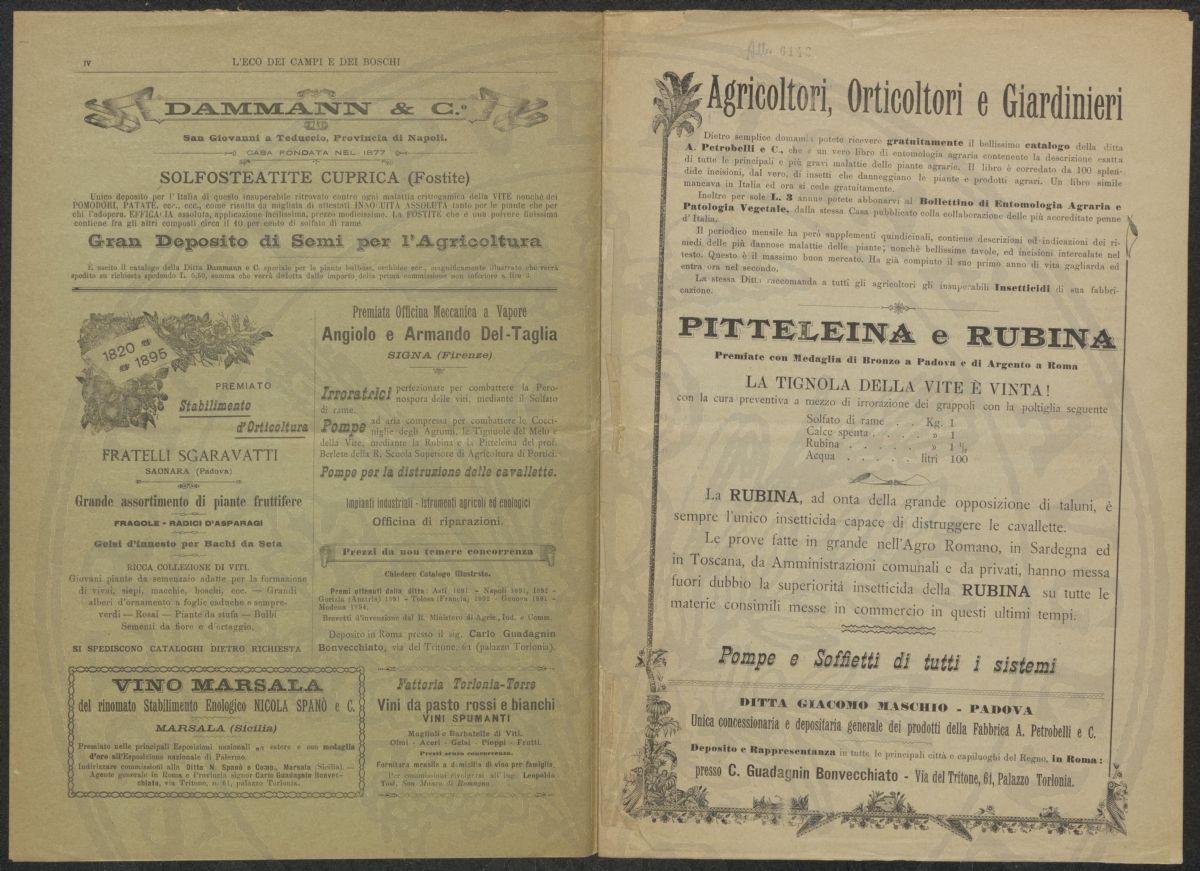 IV
L'ECO DEI CAMPI E DEI BOSCHI
DAMMANN & C.º
San Giovanni a Teduccio, Provincia di Napoli.
CASA FONDATA NEL 1877
SOLFOSTEATITE CUPRICA (Fostite)
Unico deposito per l'Italia di questo insuperabile ritrovato contro ogni malattia crittogamica della VITE nonchè dei
POMODORI, PATATE, ecc., ecc., come risulta da migliaia di attestati INNOCUITÀ ASSOLUTA tanto per le piante che per
chi l'adopera. EFFICACIA assoluta, applicazione facilissima, prezzo modicissimo. La FOSTITE che è una polvere finissima
contiene fra gli altri composti circa il 10 per cento di solfato di rame.
Gran Deposito di Semi per l'Agricoltura
È uscito il catalogo della Ditta Dammann e C. speciale per le piante bulbose, orchidee ecc., magnificamente illustrato che verrà
spedito su richiesta spedendo L. 0,50, somma che verrà dedotta dall'importo della prima commissione non inferiore a lire 5.
1820
1895
PREMIATO
Stabilimento
d'Orticoltura
FRATELLI SGARAVATTI
SAONARA (Padova)
Grande assortimento di piante fruttifere
FRAGOLE - RADICI D'ASPARAGI
Gelsi d'innesto per Bachi da Seta
RICCA COLLEZIONE DI VITI.
Giovani piante da semenzaio adatte per la formazione
di vivai, siepi, macchie, boschi, ecc. — Grandi
alberi d'ornamento a foglie caduche e sempre-
verdi — Rosai — Piante da stufa — Bulbi
Sementi da fiore e d'ortaggio.
SI SPEDISCONO CATALOGHI DIETRO RICHIESTA
Premiata Officina Meccanica a Vapore
Angiolo e Armando Del-Taglia
SIGNA (Firenze)
Irroratrici perfezionate per combattere la Pero-
nospora delle viti, mediante il Solfato
di rame.
Pompe ad aria compressa per combattere le Cocci-
niglie degli Agrumi, le Tignuole del Melo e
della Vite, mediante la Rubina e la Pitteleina del prof.
Berlese della R. Scuola Superiore di Agricoltura di Portici.
Pompe per la distruzione delle cavallette.
Impianti industriali - Istrumenti agricoli ed enologici
Officina di riparazioni.
Prezzi da non temere concorrenza
Chiedere Catalogo illustrato.
Premi ottenuti dalla ditta: Asti 1891 - Napoli 1891, 1892 -
Gorizia (Austria) 1891 - Tolosa (Francia) 1892 - Genova 1891 -
Modena 1894.
Brevetti d'invenzione dal R. Ministero di Agric., Ind. e Comm.
Deposito in Roma presso il sig. Carlo Guadagnin
Bonvecchiato, via del Tritone, 61 (palazzo Torlonia).
VINO MARSALA
del rinomato Stabilimento Enologico NICOLA SPANÒ e C.
MARSALA (Sicilia)
Premiato nelle principali Esposizioni nazionali ed estere e con medaglia
d'oro all'Esposizione nazionale di Palermo.
Indirizzare commissioni alla Ditta N. Spanò e Comp., Marsala (Sicilia). —
Agente generale in Roma e Provincia signor Carlo Guadagnin Bonvec-
chiato, via Tritone, n. 61, palazzo Torlonia.
Fattoria Torlonia-Torre
Vini da pasto rossi e bianchi
VINI SPUMANTI
Maglioli e Barbatelle di Viti.
Olmi - Aceri - Gelsi - Pioppi - Frutti.
Prezzi senza concorrenza.
Fornitura mensile a domicilio di vino per famiglia.
Per commissioni rivolgersi all'ing. Leopoldo
Tosi, San Mauro di Romagna
6142
Agricoltori, Orticoltori e Giardinieri
Dietro semplice domanda potete ricevere gratuitamente il bellissimo catalogo della ditta
A. Petrobelli e C., che è un vero libro di entomologia agraria contenente la descrizione esatta
di tutte le principali e più gravi malattie delle piante agrarie. Il libro è corredato da 100 splen-
dide incisioni, dal vero, di insetti che danneggiano le piante e prodotti agrari. Un libro simile
mancava in Italia ed ora si cede gratuitamente.
Inoltre per sole L. 3 annue potete abbonarvi al Bollettino di Entomologia Agraria e
Patologia Vegetale, dalla stessa Casa pubblicato colla collaborazione delle più accreditate penne
d'Italia.
Il periodico mensile ha però supplementi quindicinali, contiene descrizioni ed indicazioni dei ri-
medi delle più dannose malattie delle piante; nonchè bellissime tavole, ed incisioni intercalate nel
testo. Questo è il massimo buon mercato. Ha già compiuto il suo primo anno di vita gagliarda ed
entra ora nel secondo.
La stessa Ditta raccomanda a tutti gli agricoltori gli insuperabili Insetticidi di sua fabbri-
cazione.
PITTELEINA e RUBINA
Premiate con Medaglia di Bronzo a Padova e di Argento a Roma
LA TIGNOLA DELLA VITE È VINTA!
con la cura preventiva a mezzo di irrorazione dei grappoli con la poltiglia seguente
Solfato di rame . . Kg. 1
Calce spenta . . . . » 1
Rubina . . . . . » 1 ½
Acqua . . . . . . litri 100
La RUBINA, ad onta della grande opposizione di taluni, è
sempre l'unico insetticida capace di distruggere le cavallette.
Le prove fatte in grande nell'Agro Romano, in Sardegna ed
in Toscana, da Amministrazioni comunali e da privati, hanno messa
fuori dubbio la superiorità insetticida della RUBINA su tutte le
materie consimili messe in commercio in questi ultimi tempi.
Pompe e Soffietti di tutti i sistemi
DITTA GIACOMO MASCHIO - PADOVA
Unica concessionaria e depositaria generale dei prodotti della Fabbrica A. Petrobelli e C.
Deposito e Rappresentanza in tutte le principali città e capiluoghi del Regno, in Roma:
presso C. Guadagnin Bonvecchiato - Via del Tritone, 61, Palazzo Torlonia.